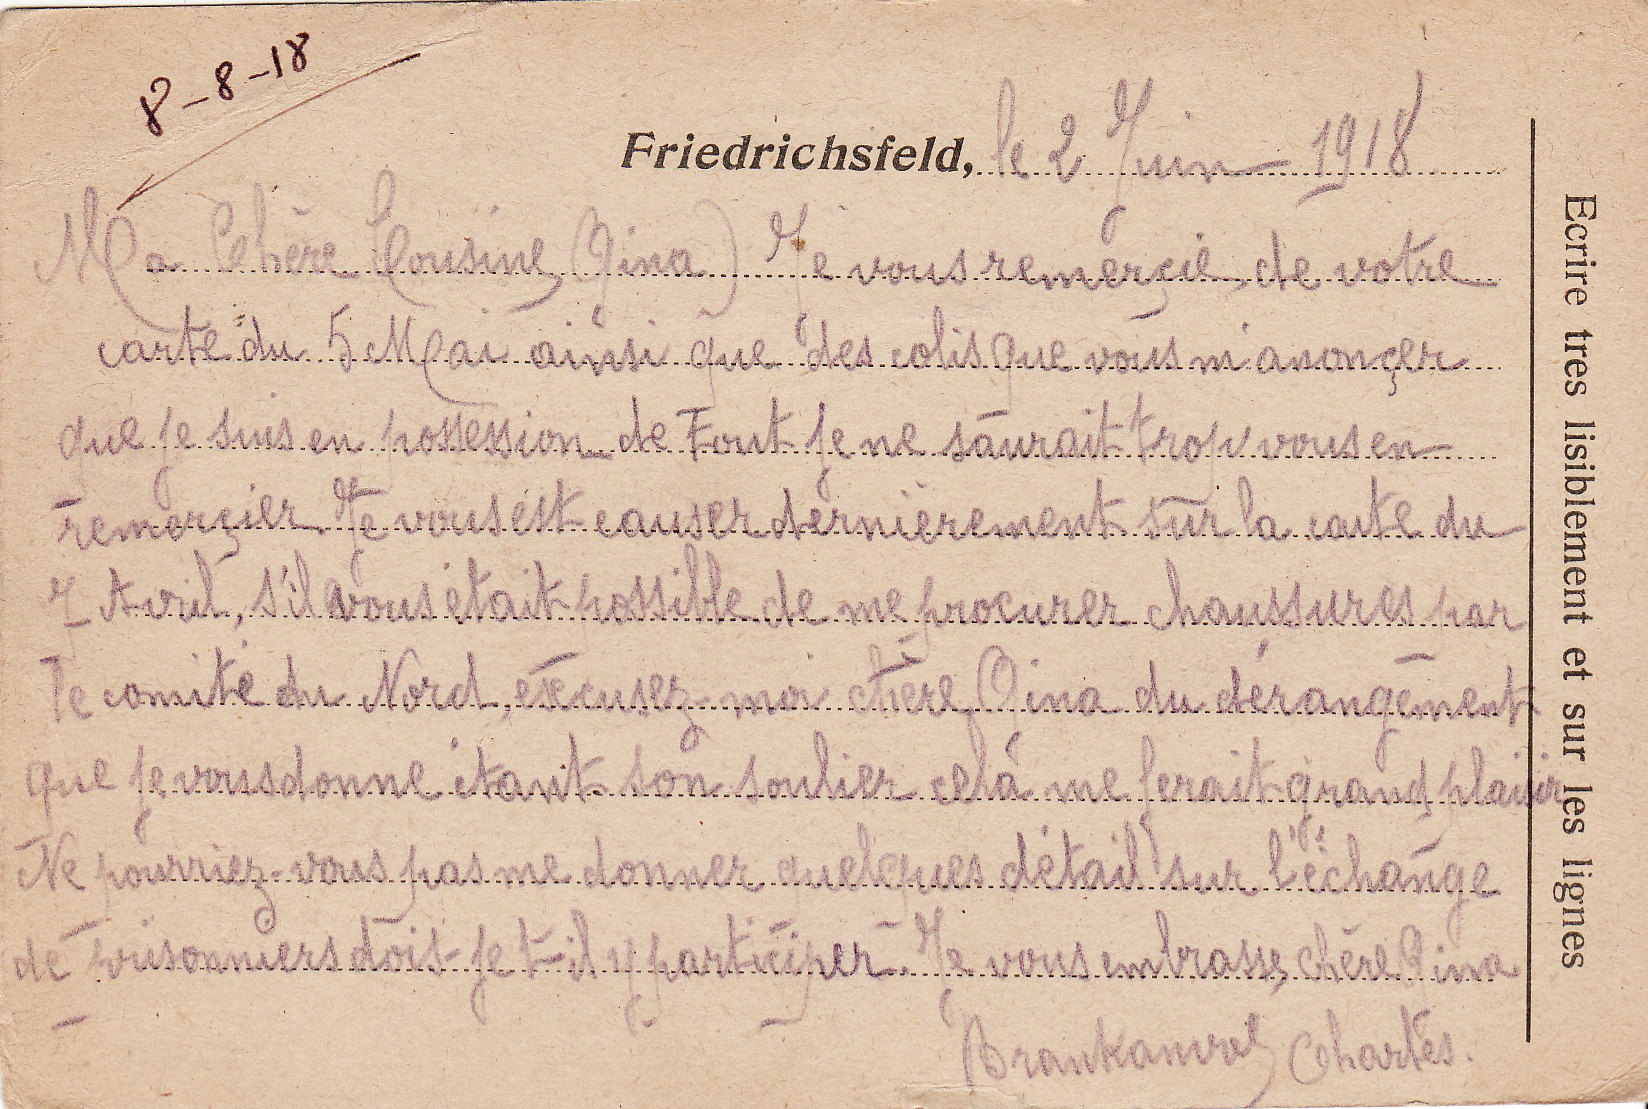 8-8-18
Friedrichsfeld, le 2 Juin 1918
Ma Chère Cousine (Gina) Je vous remerçie, de votre
carte du 5 Mai ainsi que des colis que vous m'anonçer
que je suis en possession de Tout je ne saurait trop vous en
remerçier. Je vous est causer dernièrement sur la carte du
7 Avril, s'il vous était possible de me procurer chaussures par
le comité du Nord, éxcusez-moi chère Gina du dérangement
que je vous donne étant son soulier celà me ferait grand plaisir
Ne pourriez-vous pas me donner quelques détail sur l'échange
de prisonniers dois-je t-il y participer. Je vous embrasse, chère Gina
Charles.
Ecrire tres lisiblement et sur les lignes